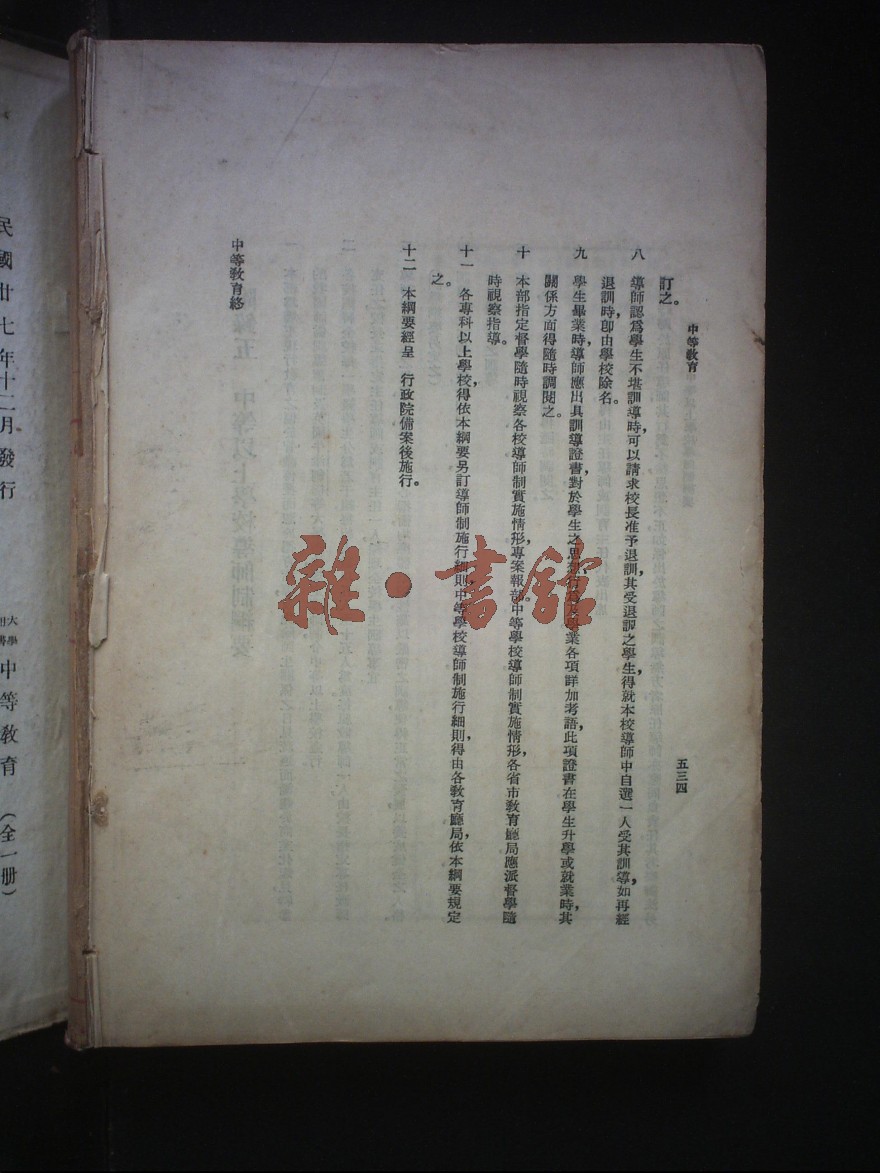 中等教育
五三四
訂之。
八 導師認爲學生不堪訓導時可以請求校長准予退訓其受退訓之學生得就本校導師中自選一人受其訓導，如再經
退訓時，卽由學校除名。
九 學生畢業時，導師應出具訓導證書，對於學生之思想行業各項詳加考語，此項證書在學生升學或就業時，其
關係方面得隨時調閱之。
十 本部指定督學隨時視察各校導師制實施情形，專案報部。中等學校導師制實施情形，各省市教育廳局應派督學隨
時視察指導。
十一 各專科以上學校，得依本綱要另訂導師制施行細則，中等學校導師制施行細則，得由各教育廳局，依本綱要規定
之。
十二 本綱要經呈 行政院備案後施行。
中等教育終
民國廿七年十二月發行
大學
用書
中等教育（全一册）
雜·書館